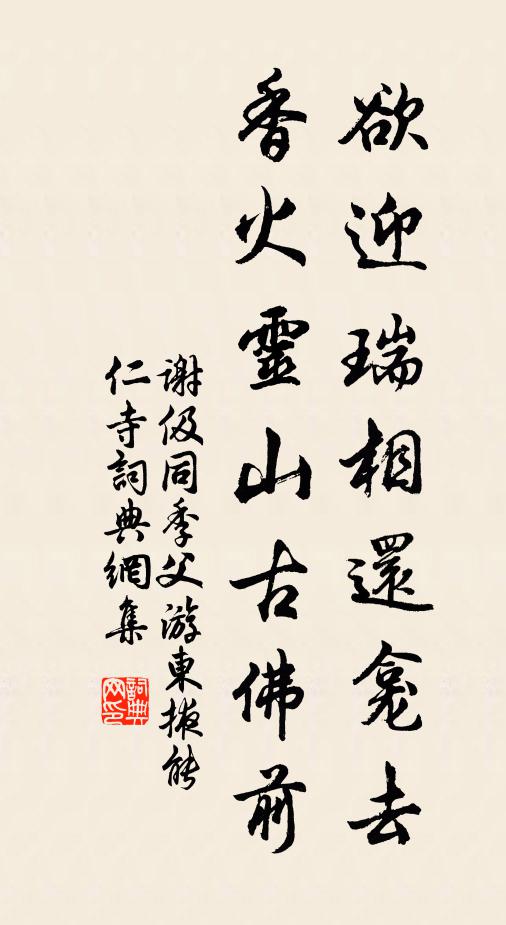 欲迎瑞相還龕去
香火靈山古佛前
謝伋同季父游東掖能
仁寺詞典網集
詞典網印